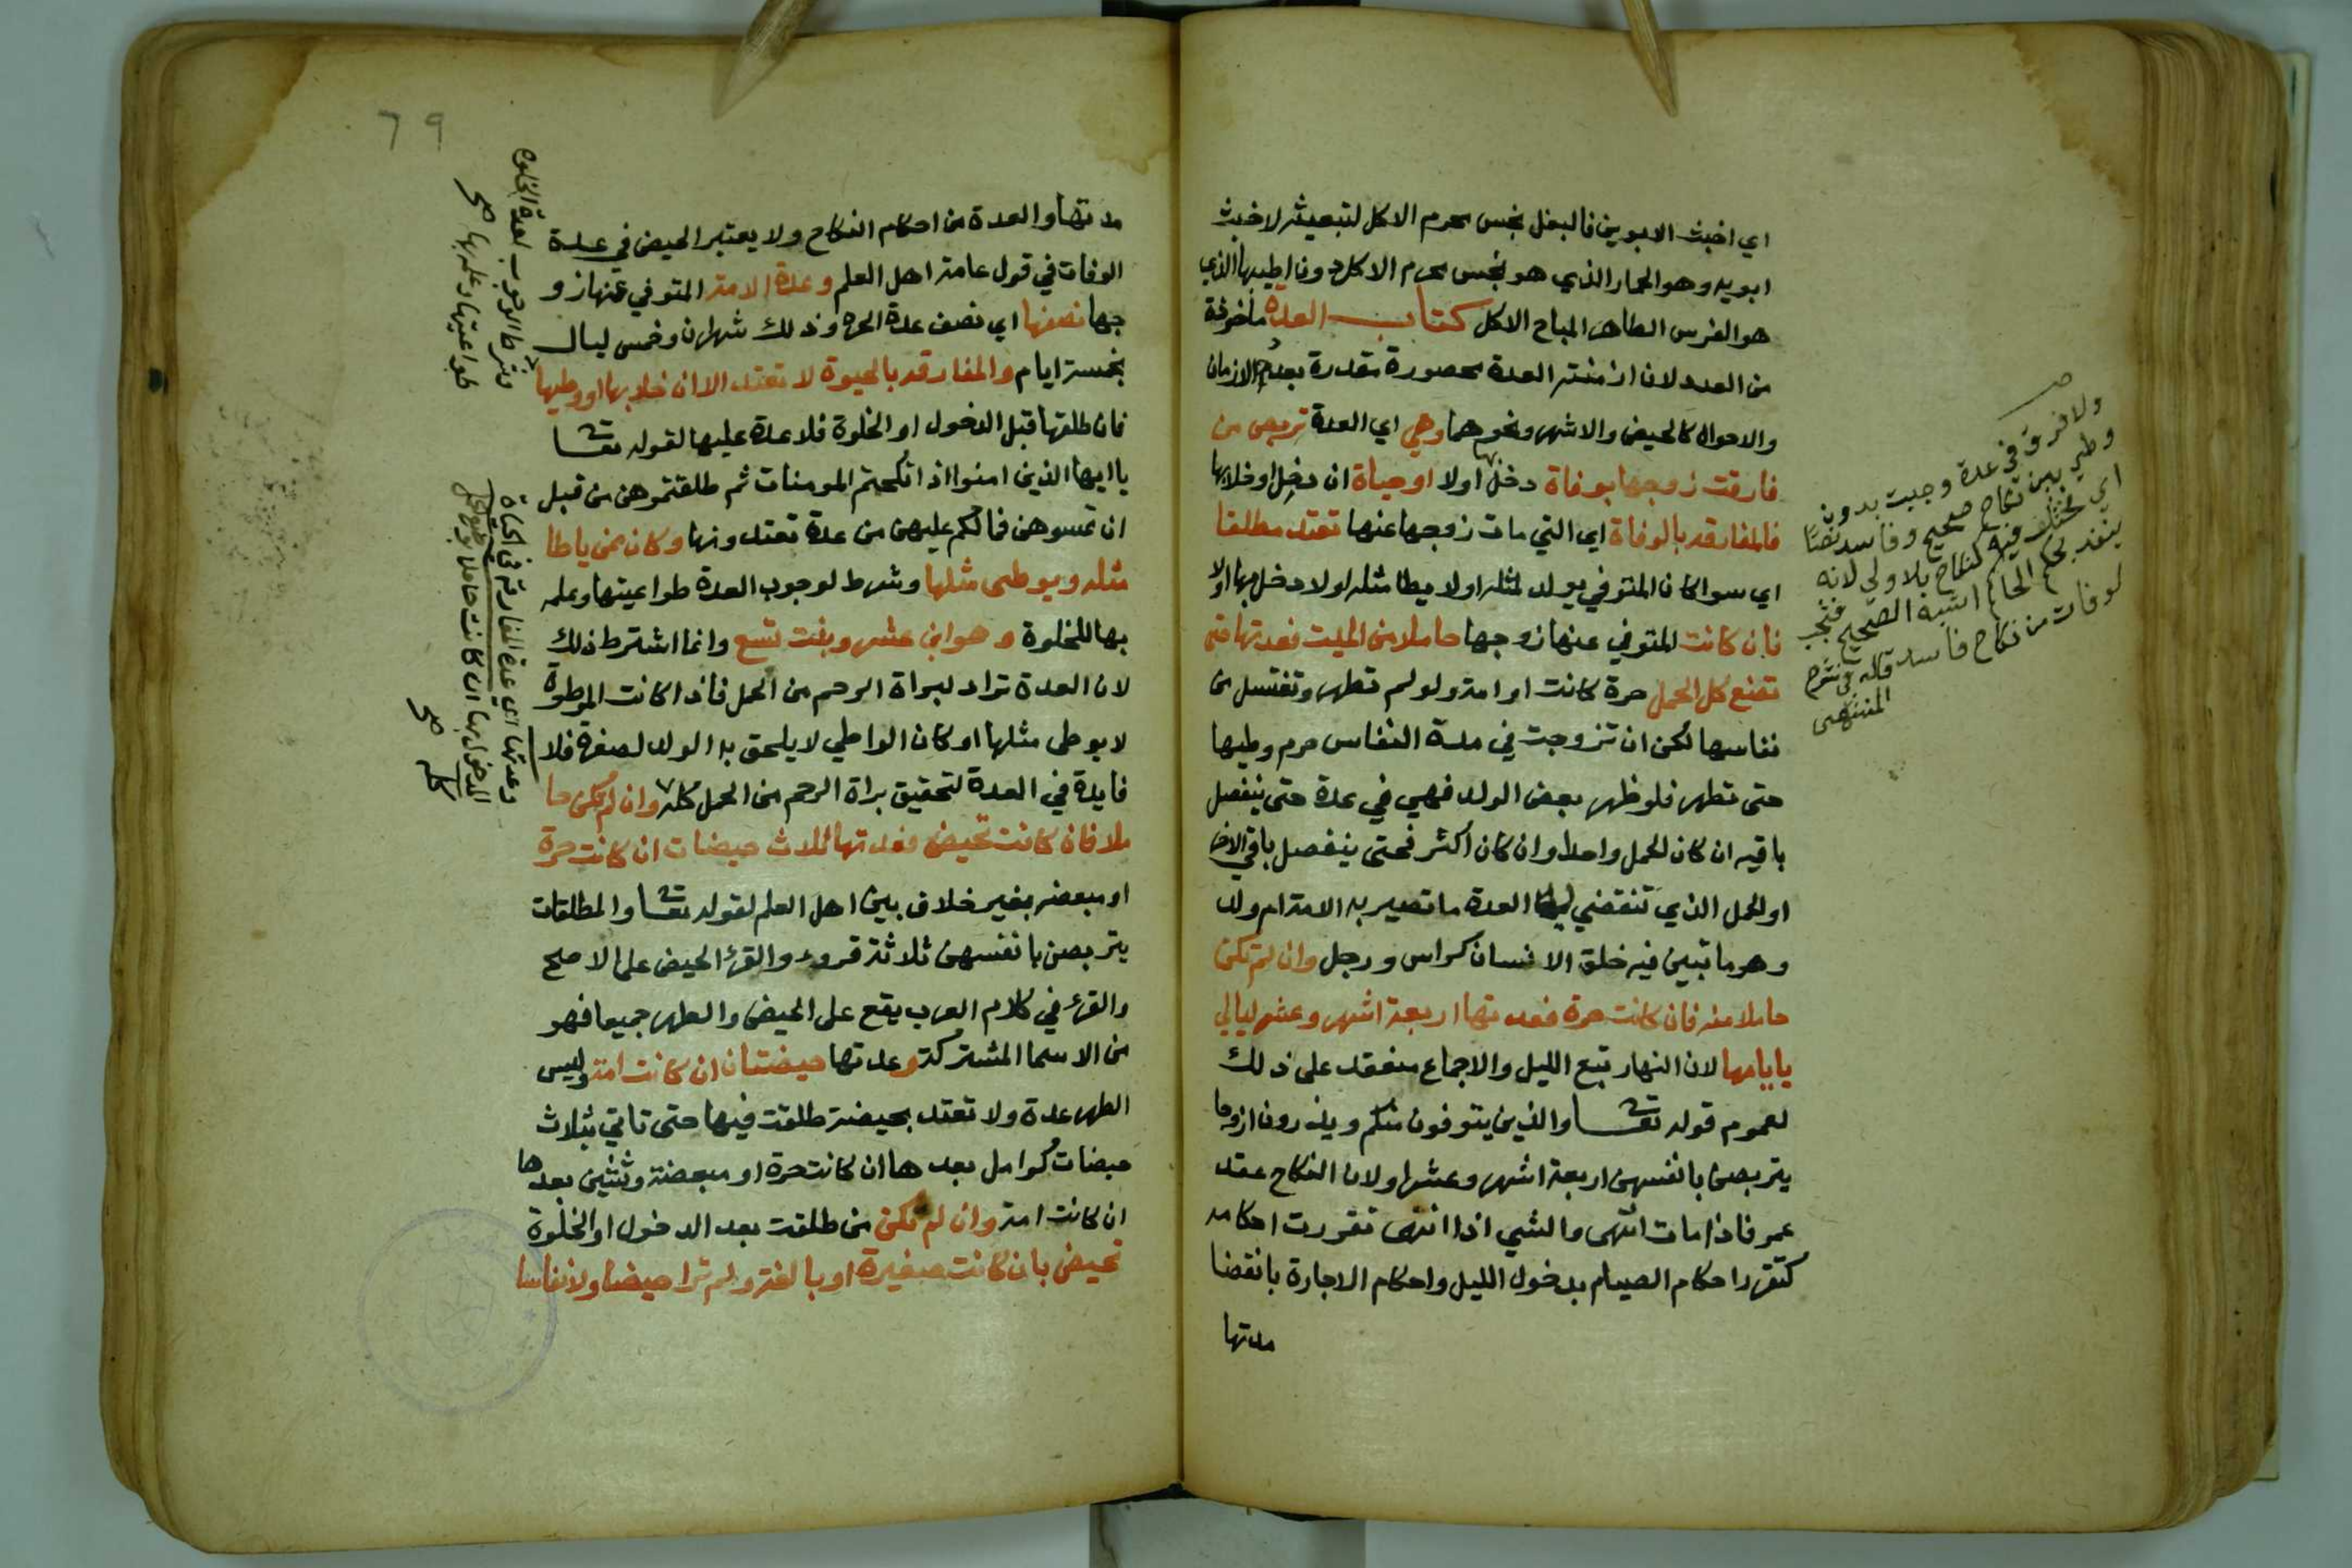 اي اخبث الابوين فالبغل نجس محرم الاكل لتبعيته لاخبث
ابويه وهو الحمار الذي هو نجس محرم الاكل دون اطيبها الذي
هو الفرس الطاهر المباح الاكل كتاب العدة مأخوذة
من العدد لان ازمنة العدة محصورة مقدرة بعدد الازمان
والاحوال كالحيض والاشهر ونحوهما وهي اي العدة تربص من
فارقت زوجها بوفاة دخل بها اولا او حياة ان دخل او خلا بها
فالمفارقه بالوفاة اي التي مات زوجها عنها تعتد مطلقا
اي سوا كان المتوفي يولد لمثله اولا يطا مثله اولا دخل بها اولا
فان كانت المتوفي عنها زوجها حاملا من الميت فعدتها حتى
تضع كل الحمل حرة كانت او امة ولو لم تطهر وتغتسل من
نفاسها لكن ان تزوجت في مدة النفاس حرم وطيها
حتى تطهر فلو ظهر بعض الولد فهي في عدة حتى ينفصل
باقيه ان كان الحمل واحدا وان كان اكثر فحتى ينفصل باقي الاخر
او الحمل الذي تنقضي به العدة ما تصير به الامة ام ولد
وهو ما تبين فيه خلق الانسان كراس ورجل وان لم تكن
حاملا منه فان كانت حرة فعدتها اربعة اشهر وعشر ليالي
بايامها لان النهار تبع الليل والاجماع منعقد على ذلك
لعموم قوله تعا والذين يتوفون منكم ويذرون ازوجا
يتربصن بانفسهن اربعة اشهر وعشرا ولان النكاح عقد
عمر فاذا مات انتهى والشي اذا انتهى تقررت احكامه
كتقرر احكام الصيام بدخول الليل واحكام الاجارة بانقضا
مدتها
ولا فرق في عدة وجبت بدون
وطي بين نكاح صحيح وفاسد نصا
اي مختلف فيه كنكاح بلا ولي لانه
ينفذ بحكم الحاكم اشبه الصحيح فتجب
لوفات من نكاح فاسد قاله في شرح
المنتهى
٦٩
مدتها والعدة من احكام النكاح ولا يعتبر الحيض في عدة
الوفات في قول عامة اهل العلم وعدة الامة المتوفي عنها زو
جها نصفها اي نصف عدة الحرة وذلك شهران وخمس ليال
بخمسة ايام والمفارقه بالحيوة لا تعتد الا ان خلا بها او وطيها
فان طلقها قبل الدخول او الخلوة فلا عدة عليها لقوله تعا
يا ايها الذين امنوا اذ انكحتم المومنات ثم طلقتموهن من قبل
ان تمسوهن فما لكم عليهن من عدة تعتدونها وكان ممن ياطا
مثله ويوطى مثلها وشرط لوجوب العدة طواعيتها وعلمه
بها للخلوة وهو ابن عشر وبنت تسع وانما اشترط ذلك
لان العدة تراد لبراة الرحم من الحمل فاذا كانت الموطوة
لا يوطى مثلها او كان الواطي لا يلحق به الولد لصغره فلا
فايدة في العدة لتحقيق براة الرحم من الحمل كله وان لم تكن حا
ملا فان كانت تحيض فعدتها ثلاث حيضات ان كانت حرة
او مبعضه بغير خلاف بين اهل العلم لقوله تعا والمطلقات
يتربصن بانفسهن ثلاثة قروء والقرء الحيض على الاصح
والقرء في كلام العرب يقع على الحيض والطهر جميعا فهو
من الاسما المشتركة وعدتها حيضتان ان كانت امة وليس
الطهر عدة ولا تعتد بحيضة طلقت فيها حتى تاتي بثلاث
حيضات كوامل بعدها ان كانت حرة او مبعضة وثنتين بعدها
ان كانت امة وان لم تكن من طلقت بعد الدخول او الخلوة
تحيض بان كانت صغيرة او بالغة ولم ترا حيضا ولا نفاسا
وشرط لوجوب لعدة الخلوه
طواعيتها وعلمه بها صح
وعدتها اي عدة المفارقة في الحياة
المدخول بها ان كانت حاملا بوضع الحمل
كله صح